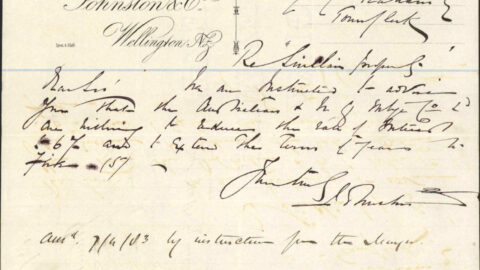 Johnston & Co
Wellington, N.Z
Town Clerk
Re "Sinclair property"
Dear Sir
I am instructed to advise
you that the Australian & N Z Mtge Co Ld
are willing to reduce the rate of Interest
to 6% and to extend the terms of years to
five (5)
Yours truly
Ansd. 7/9/83 by instruction from the Mayor